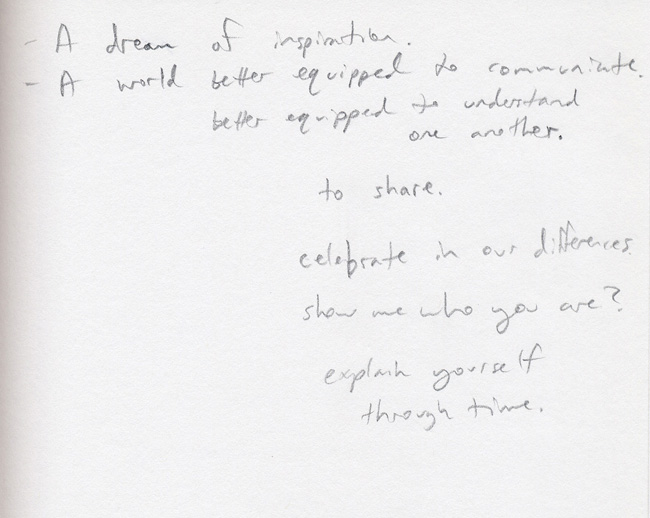 - A dream of inspiration.
- A world better equipped to communicate.
better equipped to understand
one another.
to share.
celebrate in our differences.
show me who you are?
explain yourself
through time.